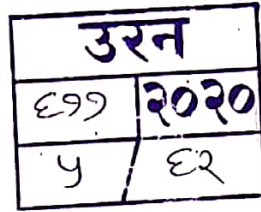 उरन
६११ २०२०
५ / ६२